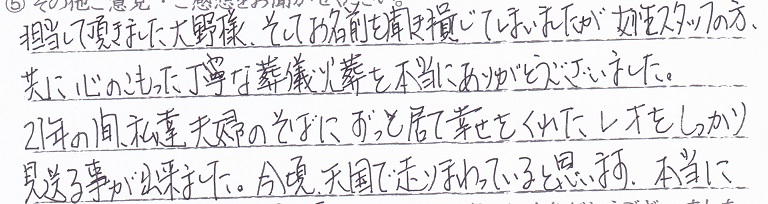 ⑤ その他ご意見・ご感想をお聞かせください。
担当して頂きました大野様、そしてお名前を聞き損じてしまいましたが女性スタッフの方、
共に心のこもった丁寧な葬儀火葬を本当にありがとうございました。
21年の間、私達夫婦のそばにずっと居て幸せをくれたレオをしっかり
見送る事が出来ました。今頃、天国で走りまわっていると思います。本当に